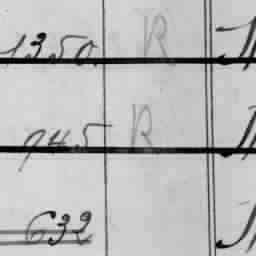 1350. R
945 R
632